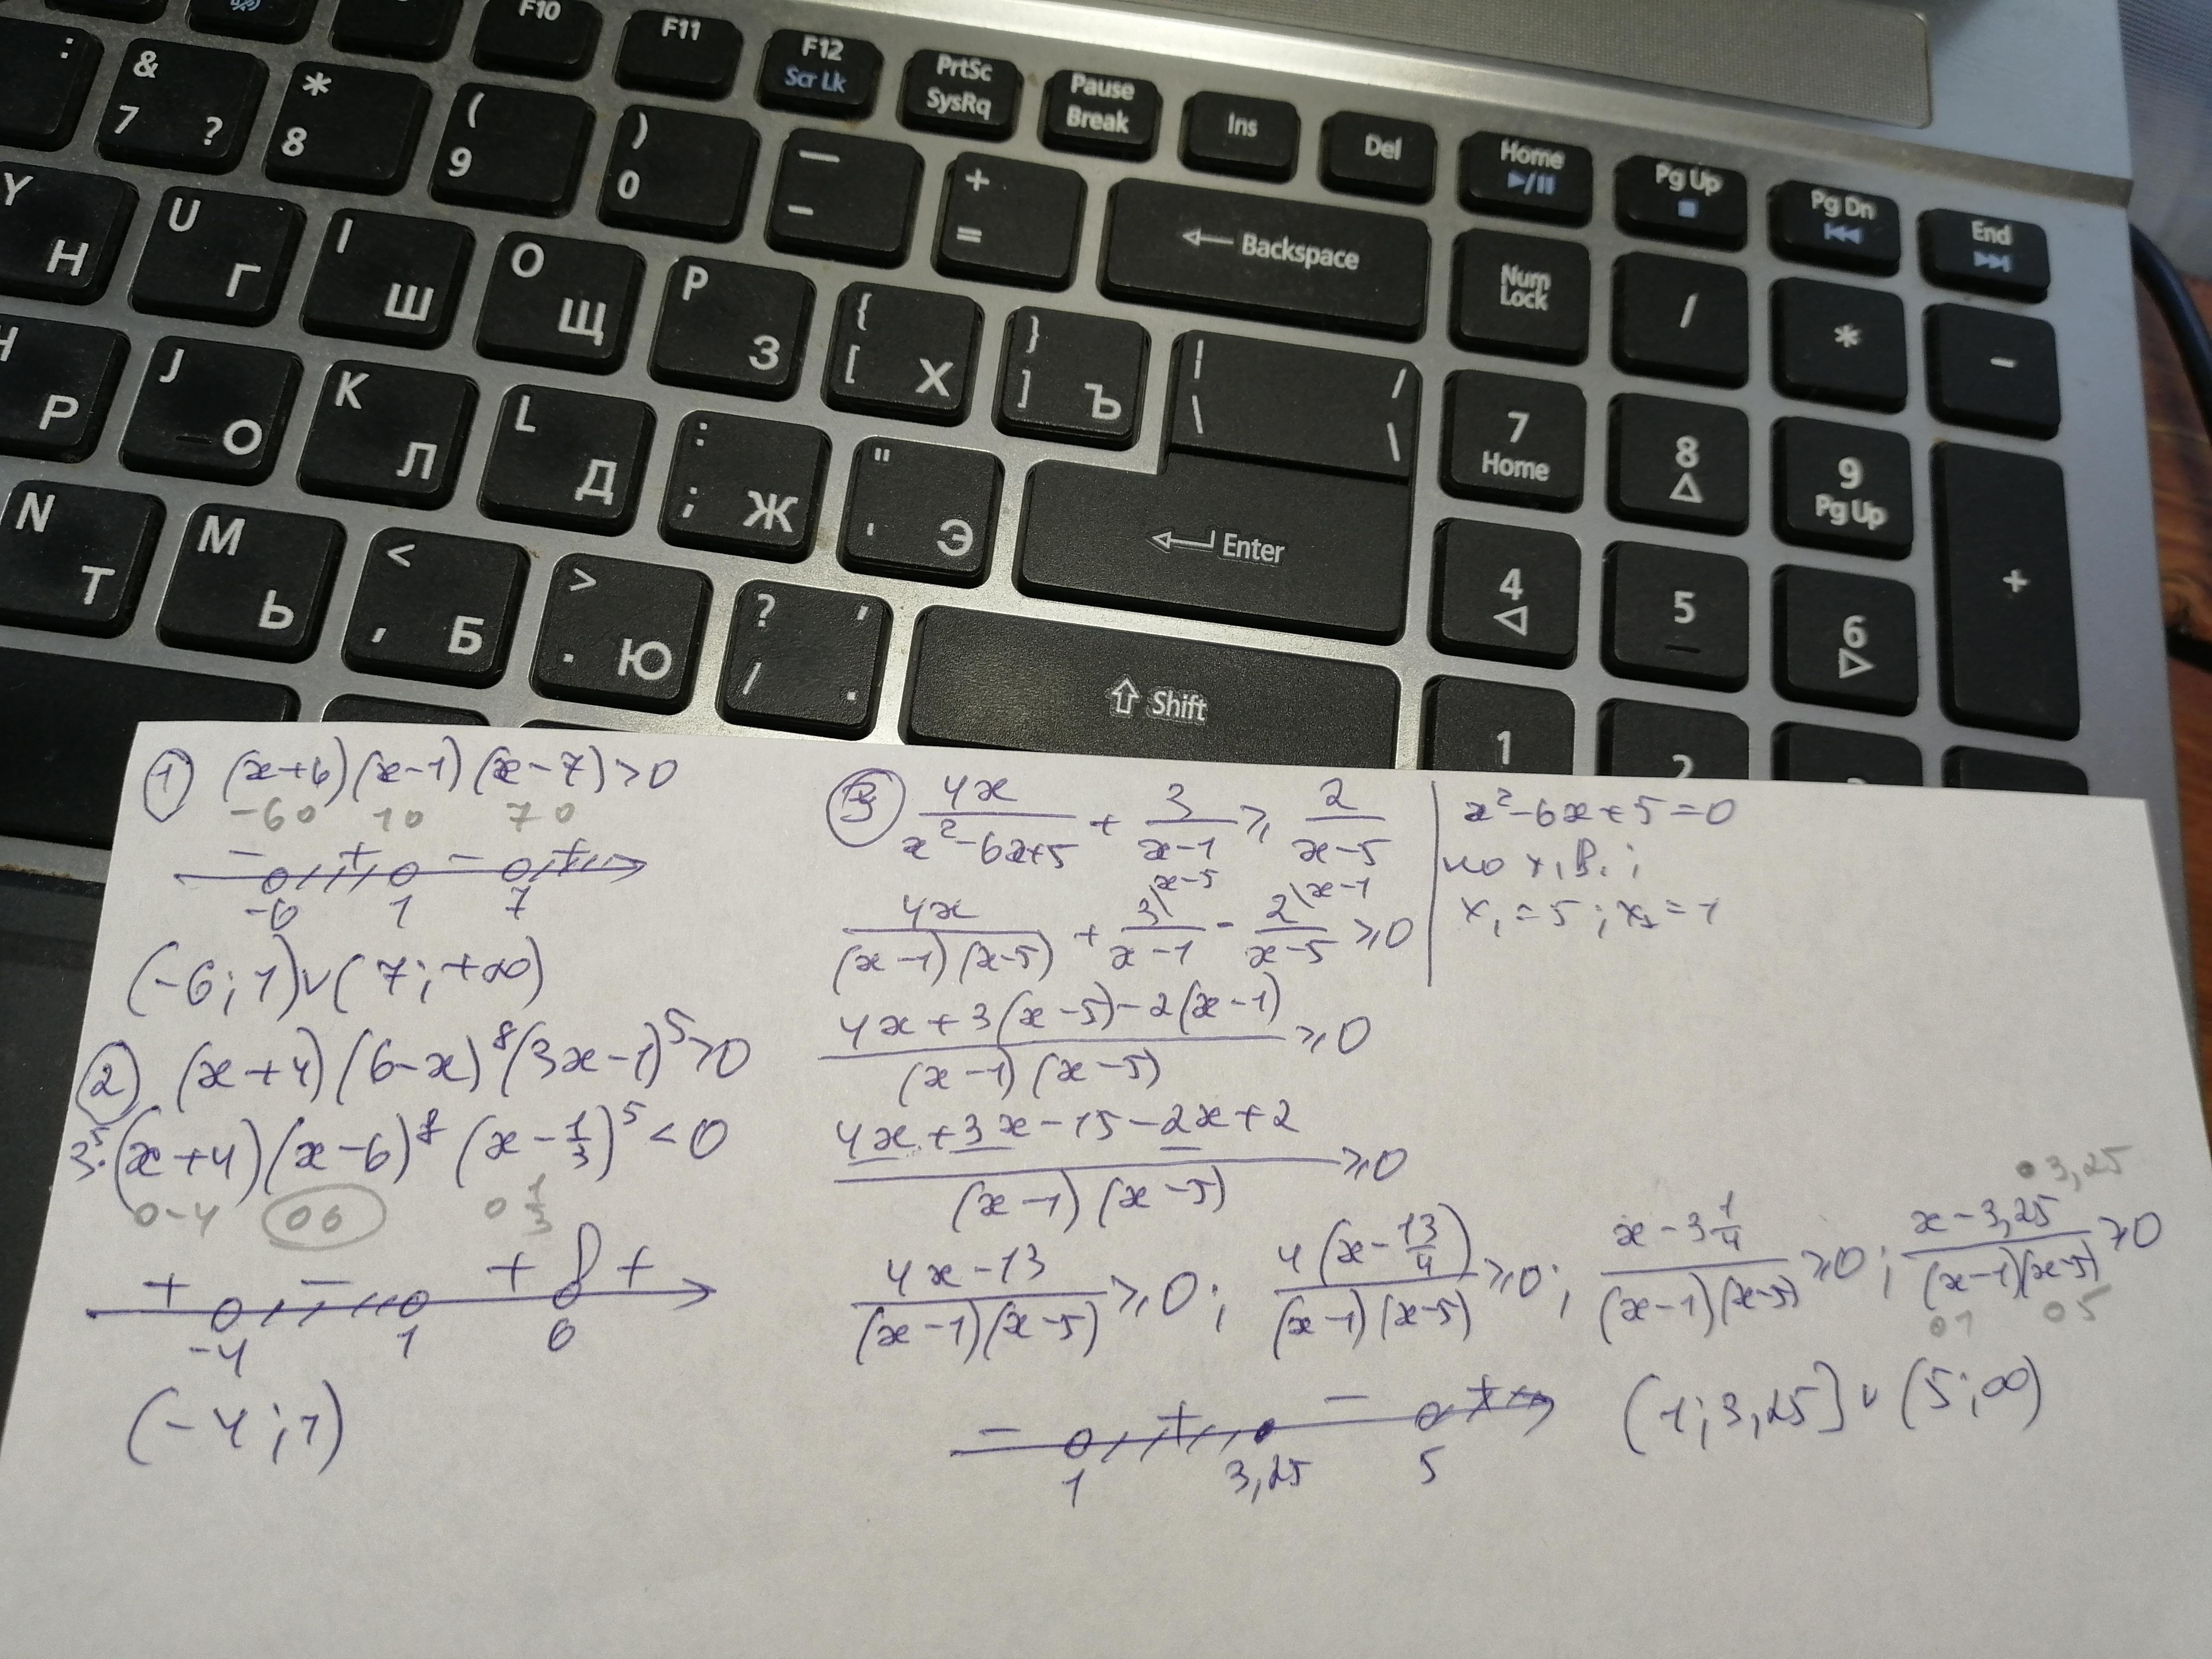 F10 F11 F12 Scr Lk PrtSc SysRq Pause Break Ins Del Home ▶/II Pg Up ■ Pg Dn |◀◀ End ▶▶|
: & 7 ? * 8 ( 9 ) 0 — - + = ← Backspace Num Lock / * -
Y Н U Г I Ш O Щ P З { [ Х } ] Ъ | \ / \ 7 Home 8 △ 9 Pg Up +
H Р J О K Л L Д : ; Ж " ' Э ← Enter 4 ◁ 5 6 ▷
N Т M Ь < , Б > . Ю ? / , . ⇧ Shift 1 2
① (x+6)(x-1)(x-7)>0
-6 0 1 0 7 0
- + - +
-6 1 7
(-6;1)∪(7;+∞)
② (x+4)(6-x)⁸(3x-1)⁵>0
3⁵·(x+4)(x-6)⁸(x-1/3)⁵<0
0-4 06 0 1/3
+ - + +
-4 1 6
(-4;1)
③ 4x/(x²-6x+5) + 3/(x-1) ≥ 2/(x-5)
x²-6x+5=0
по т.В.;
x₁=5; x₂=1
4x/((x-1)(x-5)) + 3\x-5/(x-1) - 2\x-1/(x-5) ≥0
(4x+3(x-5)-2(x-1))/((x-1)(x-5)) ≥0
(4x+3x-15-2x+2)/((x-1)(x-5)) ≥0
(4x-13)/((x-1)(x-5)) ≥0; 4(x-13/4)/((x-1)(x-5)) ≥0; (x-3 1/4)/((x-1)(x-5)) ≥0; (x-3,25)/((x-1)(x-5)) ≥0
•3,25
01 05
- + - +
1 3,25 5
(1;3,25]∪(5;∞)